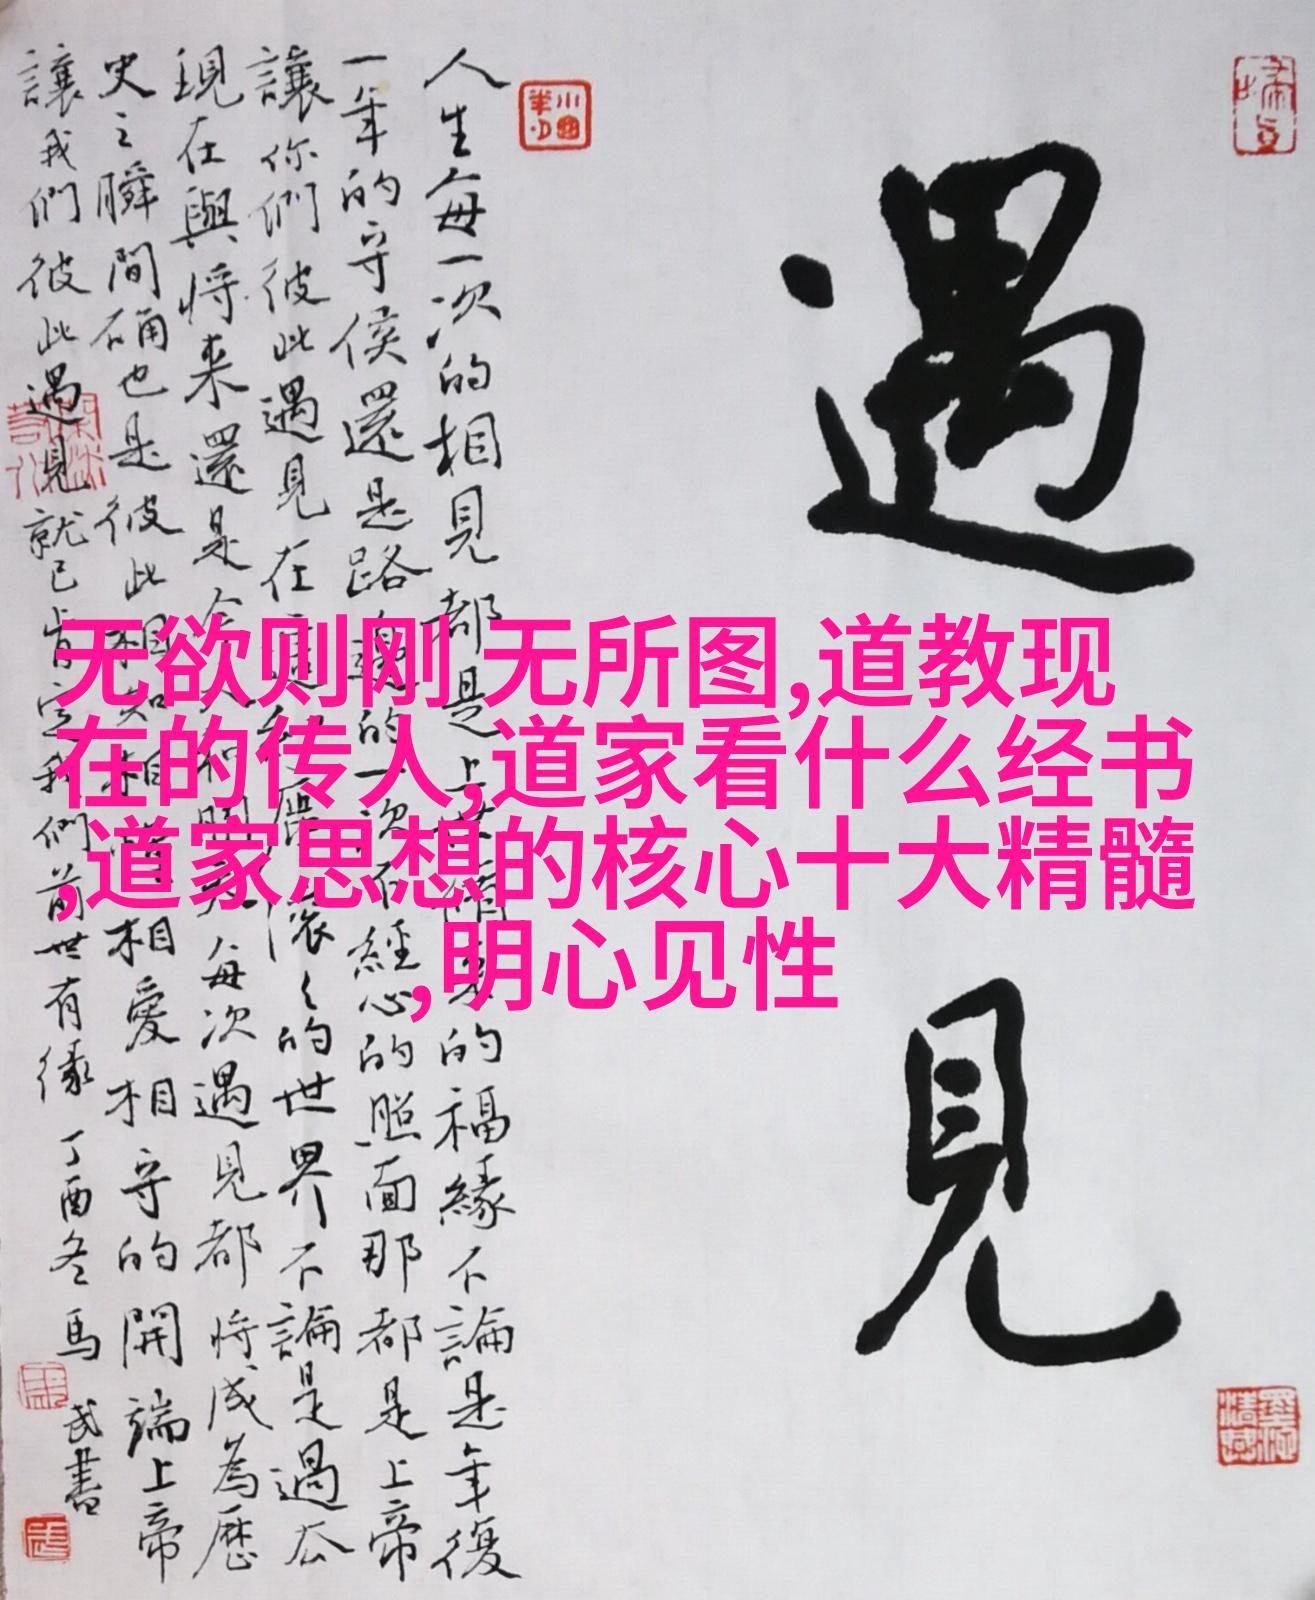 遇見
人生每一次的相見都是上的福緣不論是年復
一年的守侯還是路邊的一次不經心的照面那都是上帝
讓你們彼此遇見在滾々的世界不論是過去
現在與將来還是每次遇見都將成為歷
史之瞬間确也是彼此相知相相愛相守的開端上帝
讓我們彼此遇見就已肯定我們前世有缘 丁酉冬馬武書
无欲则刚 无所图,道教现
在的传人,道家看什么经书
,道家思想的核心十大精髓
,明心见性